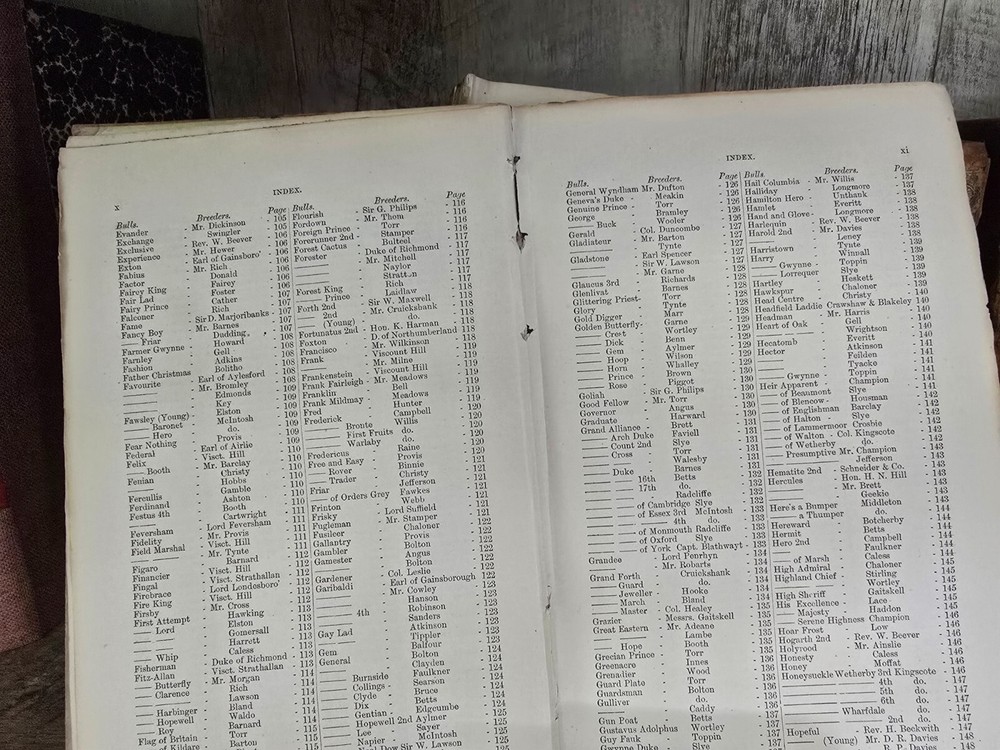 x
INDEX.
Bulls. Breeders. Page
Evander - Mr. Dickinson - 105
Exchange - Swingler - 105
Exclusive - Rev. W. Beever - 106
Experience - Mr. Hewer - 106
Exton - Earl of Gainsboro' - 106
Fabius - Mr. Rich - 106
Factor - Donald - 106
Fairey King - Fairey - 106
Fair Lad - Foster - 107
Fairy Prince - Cather - 107
Falconer - Rich - 107
Fame - Sir D. Marjoribanks - 107
Fancy Boy - Mr. Barnes - 107
—— Friar - Dudding - 108
Farmer Gwynne - Howard - 108
Farnley - Gell - 108
Fashion - Adkins - 108
Father Christmas - Bolitho - 108
Favourite - Earl of Aylesford - 108
—— - Mr. Bromley - 108
—— - Edmonds - 108
—— - Key - 109
Fawsley (Young) - Elston - 109
—— Baronet - McIntosh - 109
—— Hero - do. - 109
Fear Nothing - Provis - 109
Federal - Earl Airlie - 109
Felix - Visct. Hill - 110
—— Booth - Mr. Barclay - 110
Fenian - Christy - 110
—— - Hobbs - 110
Fercullis - Gamble - 110
Ferdinand - Ashton - 110
Festus 4th - Booth - 110
—— - Cartwright - 111
Feversham - Lord Feversham - 111
Fidelity - Mr. Provis - 111
Field Marshal - Visct. Hill - 111
—— - Mr. Tynte - 111
—— - Barnard - 112
Figaro - Visct. Hill - 112
Financier - Visct. Strathallan - 112
Fingal - Lord Londesboro' - 112
Firebrace - Visct. Hill - 112
Fire King - Mr. Cross - 112
Firsby - Hawking - 113
First Attempt - Elston - 113
—— Lord - Gomersall - 113
—— - Harrett - 113
—— - Caless - 113
—— Whip - Duke of Richmond - 113
Fisherman - Visct. Strathallan - 113
Fitz-Allan - Mr. Morgan - 114
—— Butterfly - Rich - 114
—— Clarence - Lawson - 114
—— - Bland - 114
—— Harbinger - Waldo - 114
—— Hopewell - Barnard - 114
—— Roy - Torr - 115
Flag of Britain - Barton - 115
of Kildare
Bulls. Breeders. Page
Flourish - Sir G. Philips - 116
Fordown - Mr. Thom - 116
Foreign Prince - Torr - 116
Forerunner 2nd - Stamper - 116
Forest Cactus - Bulteel - 117
Forester - Duke of Richmond - 117
—— - Mr. Mitchell - 117
—— - Naylor - 117
—— - Stratton - 117
Forest King - Rich - 117
—— Prince - Laidlaw - 118
Forth 2nd - Sir W. Maxwell - 118
—— 2nd - Mr. Cruickshank - 118
—— (Young) - do. - 118
Fortunatus 2nd - Hon. K. Harman - 118
Foxton - D. of Northumberland - 118
Francisco - Mr. Wilkinson - 119
Frank - Viscount Hill - 119
—— - Mr. Milne - 119
Frankenstein - Viscount Hill - 119
Frank Fairleigh - Mr. Meadows - 119
Franklin - Bell - 119
Frank Mildmay - Meadows - 119
Fred - Hunter - 120
Frederick - Campbell - 120
—— Bronte - Willis - 120
—— First Fruits do. - 120
—— Warlaby do. - 120
Fredericus - Raine - 120
Free and Easy - Provis - 121
—— Rover - Binnie - 121
—— Trader - Christy - 121
Friar - Jefferson - 121
—— of Orders Grey - Fawkes - 121
Frinton - Webb - 121
Frisky - Lord Suffield - 122
Fugleman - Mr. Stamper - 122
Fusileer - Chaloner - 122
Gallantry - Provis - 122
Gambler - Bolton - 122
Gamester - Angus - 122
—— - Bolton - 122
Gardener - Col. Leslie - 122
Garibaldi - Earl of Gainsborough - 123
—— - Mr. Cowley - 123
—— - Hanson - 123
—— - Robinson - 123
—— 4th - Sanders - 123
—— - Atkinson - 123
Gay Lad - Tippler - 124
—— - Balfour - 124
Gem - Bolton - 124
General - Clayden - 124
—— Burnside - Faulkner - 124
—— Collings - Searson - 124
—— Clyde - Bruce - 125
—— Dix - Betts - 125
—— Gentian - Edgcumbe - 125
—— Hopewell 2nd Aylmer - 125
—— Lee - Sayer - 125
—— Napier - McIntosh - 125
Sir W. Lawson
xi
INDEX.
Bulls. Breeders. Page
General Wyndham Mr. Dufton - 126
Geneva's Duke - Meakin - 126
Genuine Prince - Torr - 126
George - Bramley - 126
—— Buck - Wooler - 127
Gerald - Col. Duncombe - 127
Gladiateur - Mr. Barton - 127
—— - Tynte - 127
Gladstone - Earl Spencer - 127
—— - Sir W. Lawson - 127
—— - Mr. Garne - 128
Glaucus 3rd - Richards - 128
Glenlivat - Barnes - 128
Glittering Priest - Torr - 128
Glory - Tynte - 128
Gold Digger - Marr - 128
Golden Butterfly - Garne - 129
—— Crest - Wortley - 129
—— Dick - Benn - 129
—— Gem - Aylmer - 129
—— Hoop - Wilson - 129
—— Horn - Whalley - 129
—— Prince - Brown - 130
—— Rose - Piggot - 130
Goliah - Sir G. Philips - 130
Good Fellow - Mr. Torr - 130
Governor - Angus - 130
Graduate - Harward - 130
Grand Alliance - Brett - 131
—— Arch Duke - Faviell - 131
—— Count 2nd - Slye - 131
—— Cross - Torr - 131
—— - Walesby - 131
—— Duke - Barnes - 131
—— 16th Betts - 132
—— 17th do. - 132
—— - Radcliffe - 132
—— of Cambridge Slye - 132
—— of Essex 3rd McIntosh - 133
—— 4th do. - 133
—— of Monmouth Radcliffe - 133
—— of Oxford Slye - 133
—— of York Capt. Blathwayt - 133
Grandee - Lord Penrhyn - 134
—— - Mr. Robarts - 134
Grand Forth - Cruickshank - 134
—— Guard - do. - 134
—— Jeweller - Hooke - 134
—— March - Bland - 134
—— Master - Col. Healey - 135
Grazier - Messrs. Gaitskell - 135
Great Eastern - Mr. Adeane - 135
—— - Lambe - 135
—— Hope - Booth - 135
Grecian Prince - Torr - 136
Greenacre - Innes - 136
Grenadier - Wood - 136
Guard Plate - Torr - 136
Guardsman - Bolton - 136
Gulliver - do. - 136
—— - Caddy - 137
Gun Poat - Betts - 137
Gustavus Adolphus Wortley - 137
Guy Fauk - Toppin - 137
Gwynne Duke - Slye - 137
Bulls. Breeders. Page
Hail Columbia - Mr. Willis - 137
Halliday - Longmore - 137
Hamilton Hero - Unthank - 138
Hamlet - Everitt - 138
Hand and Glove - Longmore - 138
Harlequin - Rev. W. Beever - 138
Harold 2nd - Mr. Davies - 138
—— - Leney - 138
Harristown - Tynte - 139
Harry - Winnall - 139
—— Gwynne - Toppin - 139
—— Lorrequer - Slye - 139
Hartley - Heskett - 139
Hawkspur - Chaloner - 139
Head Centre - Christy - 140
Headfield Laddie Crawshaw & Blakeley 140
Headman - Mr. Harris - 140
Heart of Oak - Gell - 140
—— - Wrightson - 140
Hecatomb - Everitt - 140
Hector - Atkinson - 141
—— - Feilden - 141
—— - Tyacke - 141
—— Gwynne - Toppin - 141
Heir Apparent - Champion - 141
—— of Beaumont Slye - 141
—— of Blencow - Housman - 142
—— of Englishman Barclay - 142
—— of Halton - Slye - 142
—— of Lammermoor Crosbie - 142
—— of Walton - Col. Kingscote - 142
—— of Wetherby do. - 142
—— Presumptive Mr. Champion - 143
—— - Jefferson - 143
Hematite 2nd - Schneider & Co. - 143
Hercules - Hon. H. N. Hill - 143
—— - Mr. Brett - 143
—— - Geekie - 143
Here's a Bumper - Middleton - 144
—— a Thumper - do. - 144
Hereward - Botcherby - 144
Hermit - Betts - 144
Hero 2nd - Campbell - 144
—— - Faulkner - 144
—— of Marsh - Caless - 144
High Admiral - Chaloner - 145
Highland Chief - Stirling - 145
—— - Wortley - 145
High Sheriff - Gaitskell - 145
His Excellence - Lace - 145
—— Majesty - Haddon - 145
—— Serene Highness Champion - 146
Hoar Frost - Low - 146
Hogarth 2nd - Rev. W. Beever - 146
Holyrood - Mr. Ainslie - 146
Honesty - Caless - 146
Honey - Moffat - 146
Honeysuckle Wetherby 3rd Kingscote - 146
—— 4th do. - 147
—— 5th do. - 147
—— 6th do. - 147
—— Wharfdale do. - 147
—— 2nd do. - 147
Hopeful - Rev. H. Beckwith - 147
—— (Young) Mr. D. R. Davies - 148
R. D. Davies - 148